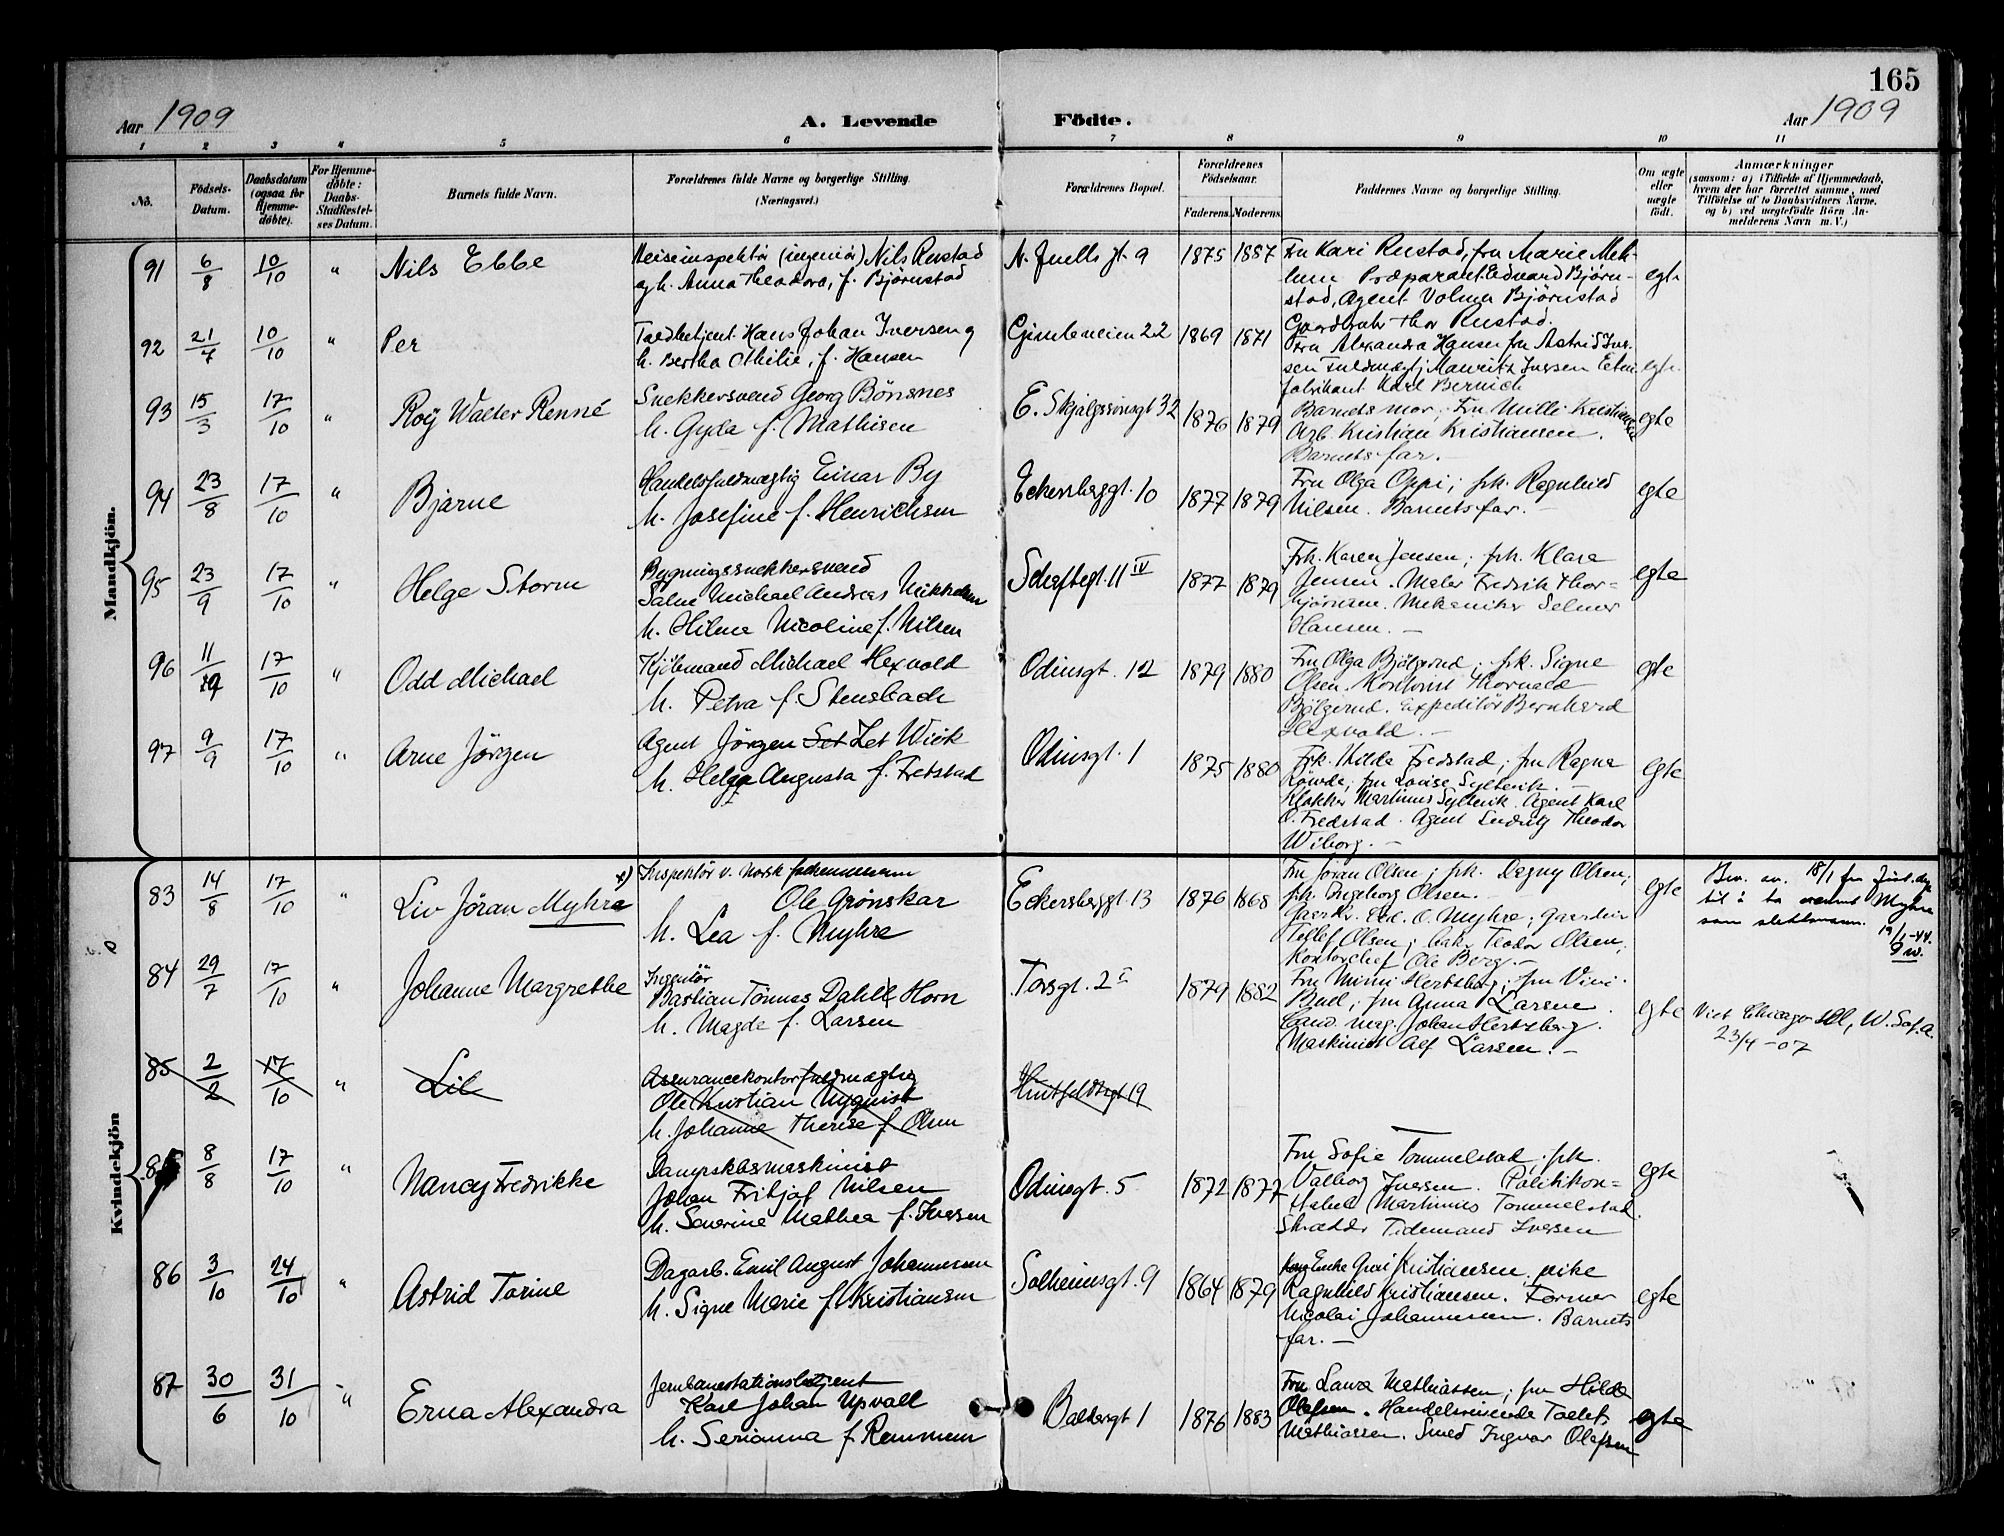 165
Aar 1909
A. Levende Födte.
Aar 1909
1 2 3 4 5 6 7 8 9 10 11
No.
Födsels-Datum.
Daabsdatum (ogsaa for Hjemme-döbte).
For Hjemme-döbte: Daabs-Stadfæstel-ses Datum.
Barnets fulde Navn.
Forældrenes fulde Navne og borgerlige Stilling.
(Næringsvei.)
Forældrenes Bopæl.
Forældrenes Födselsaar.
Faderens. Moderens.
Faddernes Navne og borgerlige Stilling.
Om ægte eller uægte födt.
Anmærkninger
(saasom: a) i Tilfælde af Hjemmedaab,
hvem der har forrettet samme, med
Tilföielse af to Daabsvidners Navne.
og b) ved uægtefödte Börn An-
melderens Navn m. V.)
Mandkjön.
91 6/8 10/10 " Nils Ebbe
Reiseinspektör (ingeniör) Nils Rustad
og h. Anna Theodora, f. Björnstad
N. Juells gt. 9 1875 1887
Fru Kari Rustad, fru Marie
Præparant Edvard Björn-
stad, Agent Björnstad
Thor Rustad.
egte
92 21/7 10/10 " Per
Toldbetjent Hans Johan Iversen og
h. Bertha Othilie, f. Hansen
Gimleveien 22 1869 1871
Fru Alexandra Hansen fru Astrid Iver-
sen fuldmægtj Mauritz Iversen
fabrikant Karl
egte.
93 15/3 17/10 " Roÿ Walter Renné
Snekkersvend Georg Bönsnes
h. Gyda f. Mathisen
E. Skjalgssönsgt 32 1876 1879
Barnets mor; Fru Milli Kristiansen
Arb. Kristian Kristiansen.
Barnets far. -
egte
94 23/8 17/10 " Bjarne
Handelsfuldmægtig Einar By
h. Josefine f. Henrichsen
Eckersberggt. 10 1877 1879
Fru Olga Oppi; frk. Ragnhild
Nilsen. Barnets far. -
egte
95 23/9 17/10 " Helge Storm
Bygningssnekkersvend
Michael Andreas
h. Hilma Nicoline f. Nilsen
Schaftegt. 11 IV 1877 1879
Frk. Karen Jensen; frk. Klara
Jensen. Maler Fredrik Thor-
björnsen. Mekaniker Selmer
Hansen. -
egte
96 11/9 17/10 " Odd Michael
Kjöbmand Michael Hexvold
h. Petra f. Stensbach
Odinsgt. 12 1879 1880
Fru Olga Bjölgerud; frk. Signe
Olsen. Kontorist Thorvald
Bjölgerud. Expeditör Bernhard
Hexvold. -
egte
97 9/9 17/10 " Arne Jörgen
Agent Jörgen Set Zet Wiik
h. Helga Augusta f. Fredstad
Odinsgt. 1 1875 1880
Frk. Hilda Fredstad; fru Ragna
fru Louise Sylterik. -
Klokker Martinus Sylterik. Agent Karl
O. Fredstad. Agent Theodor
Wiborg. -
egte
Kvindekjön
83 14/8 17/10 " Liv Jöran Myhre x)
Inspektör v. norsk
Ole Grönskar
h. Lea f. Myhre
Eckersberggt. 13 1876 1868
Fru Jöran Olsen; frk. Dagny Olsen;
frk. Ingeborg Olsen. -
O. Myhre; Gaardeier
Tellef Olsen; Teodor Olsen,
Kontorchef Ole Berg. -
egte
Bev. av. 18/1 fra Just.dep
til å ta navnet Myhre
som slektsnavn.
19/1-44.
84 29/7 17/10 " Johanne Margrethe
Ingeniör
Bastian Tönnes Dahll Horn
h. Magda f. Larsen
Torsgt. 2 I 1879 1882
Fru Mimi Hertzberg; fru Vivi
Buel; fru Anna Larsen.
Cand. mag. Johan Hertzberg.
Maskinist Alf Larsen. -
egte
Viet Chicago Ill, W. Sof. a.
23/4-07
85 2/2 17/10 " Lil
Assurancekontorfuldmægtig
Ole Kristian Nyquist
h. Johanne Therese f. Olsen
Huitfeldtsgt 19
85 8/8 17/10 " Nancy Fredrikke
Dampskibsmaskinist
Johan Fritjof Nilsen
h. Severine Mathea f. Iversen
Odinsgt. 5 1872 1877
Fru Sofie Tommelstad; frk.
Valborg Iversen. Politikon-
stabel Martinus Tommelstad.
Skrædder Tidemand Iversen
egte
86 3/10 24/10 " Astrid Torine
Dagarb. Emil August Johannessen
h. Signe Marie f. Kristiansen
Solheimsgt. 9 1864 1879
Enke Kristiansen, pike
Ragnhild Kristiansen. Former
Nicolai Johannessen. Barnets
far. -
egte
87 30/6 31/10 " Erna Alexandra
Jernbanestationsbetjent
Karl Johan Upvall
h. Serianna f. Remmem
Baldersgt 1 1876 1883
Fru Laura Mathiassen; fru Hilda
Olafsen. Handelsreisende
Mathiassen. Smed Ingvar Olafsen
egte